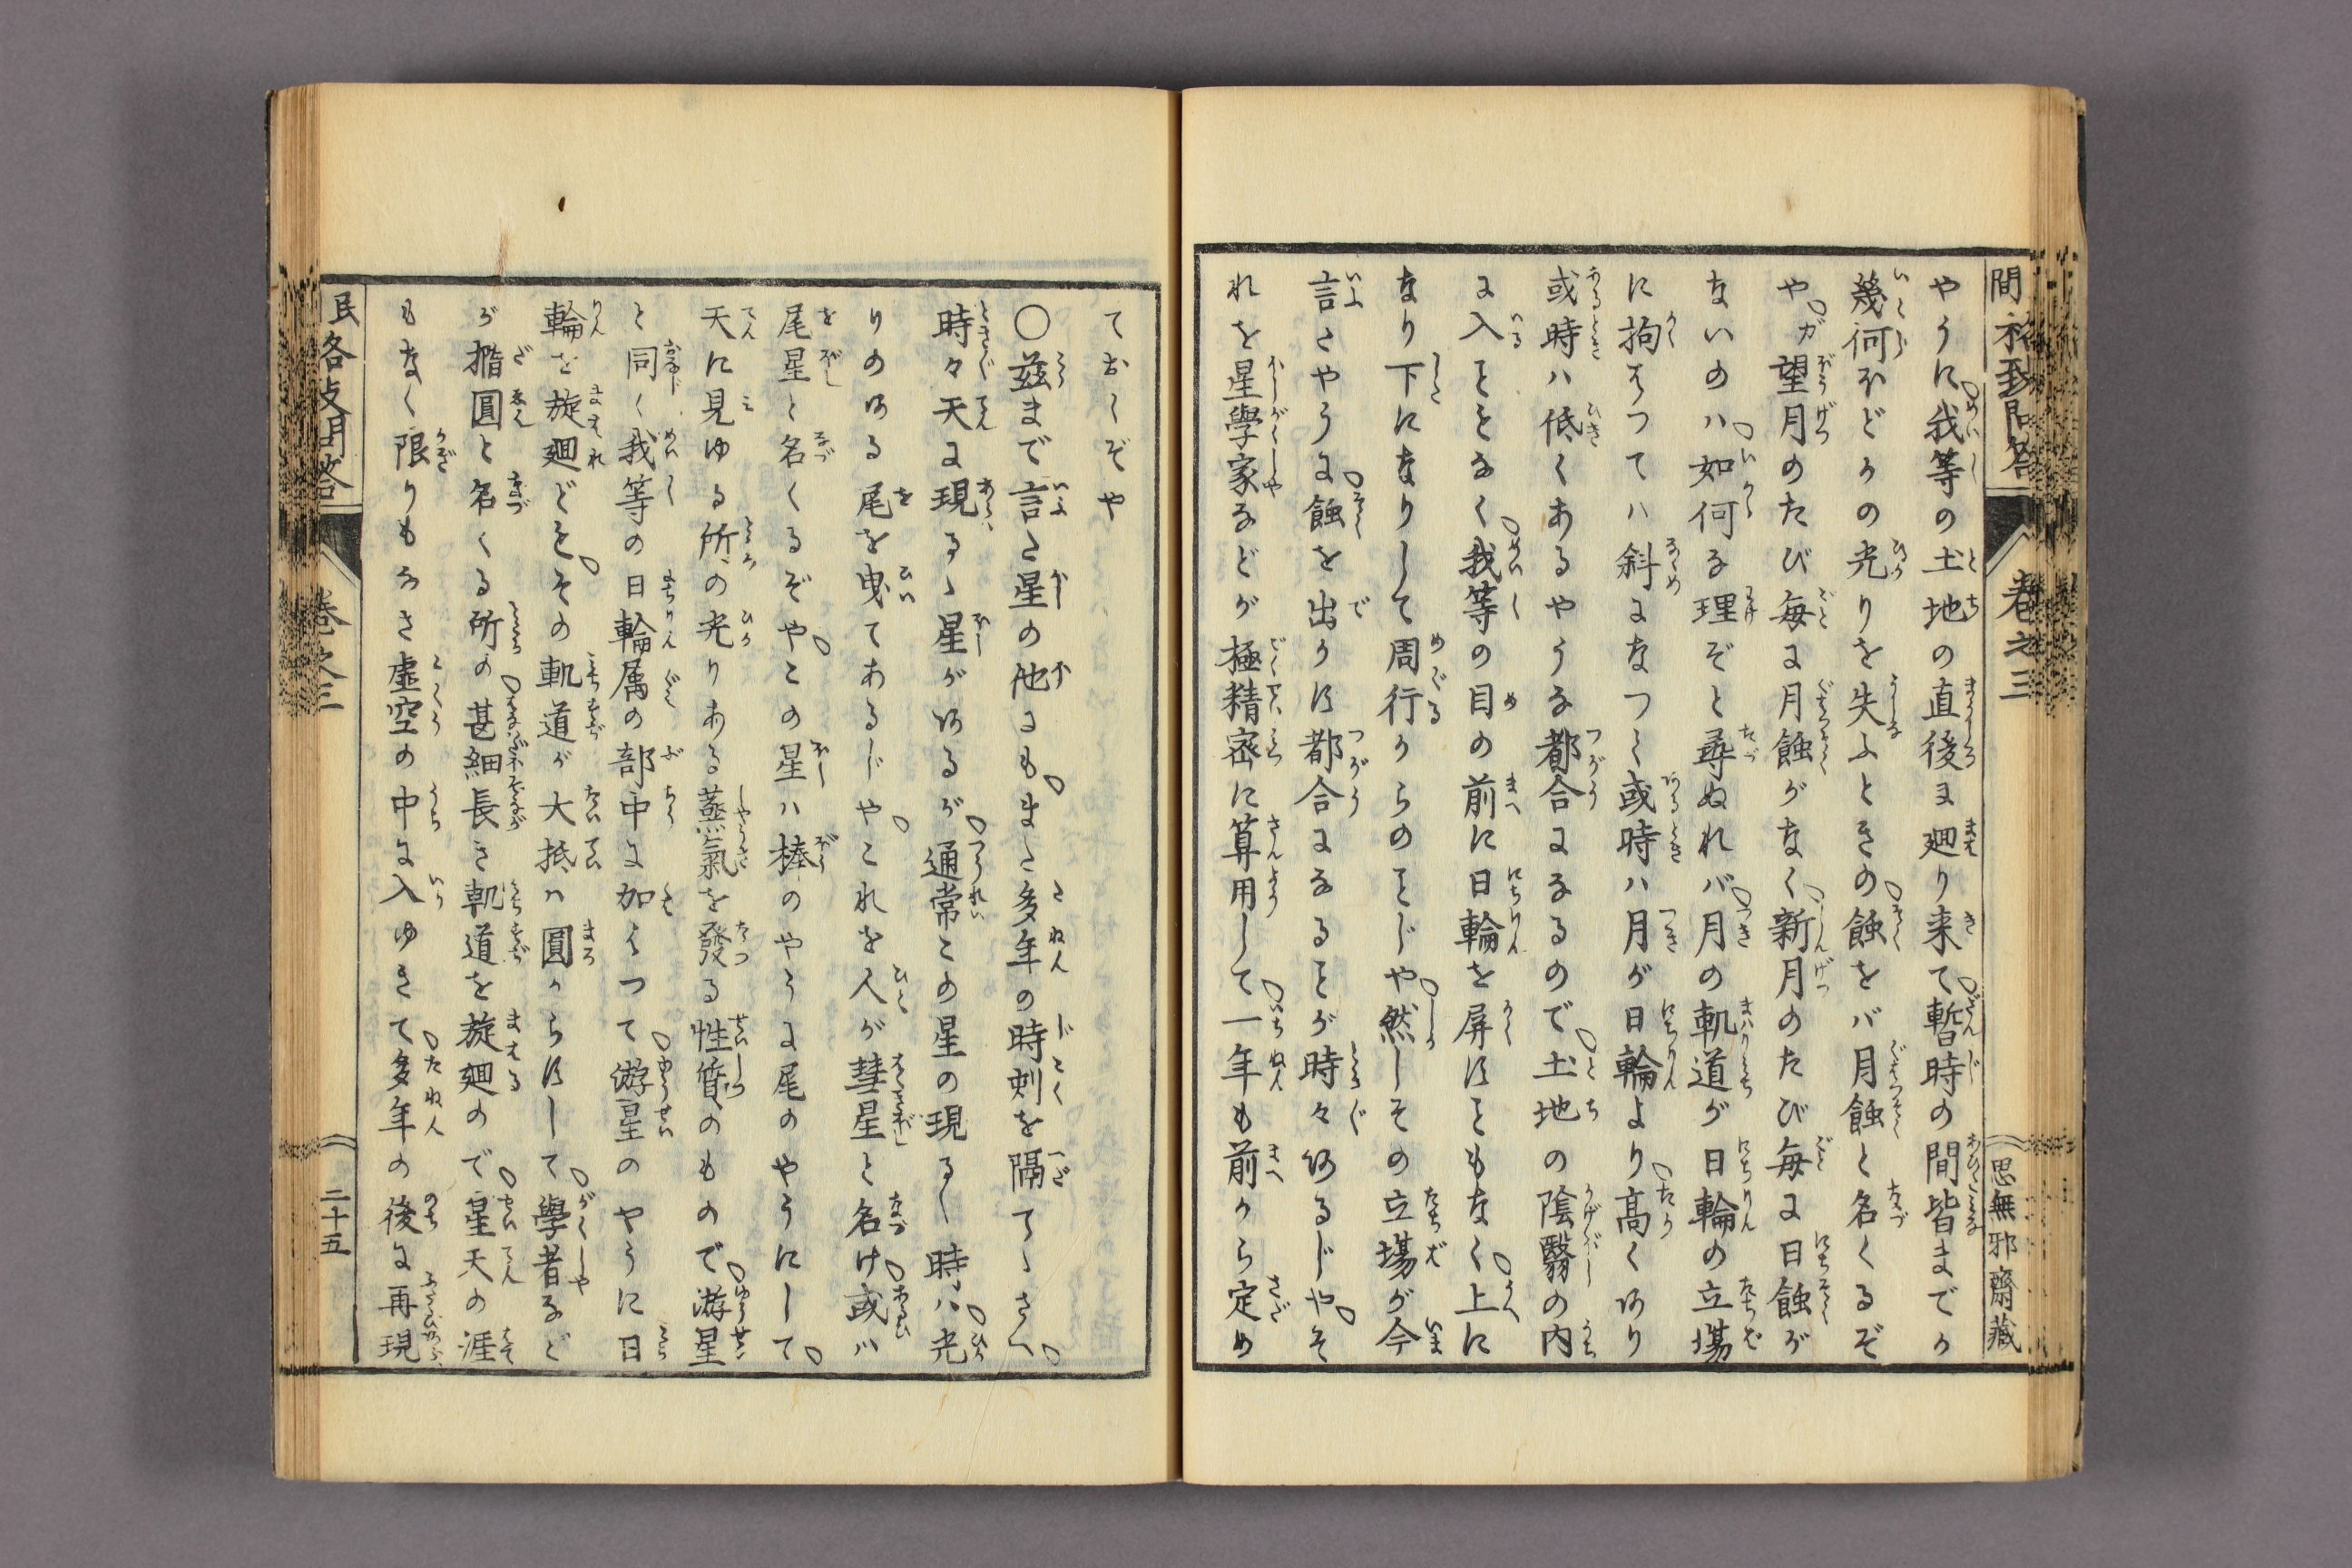 間 格致問答
卷之三
思無邪齋藏
やうに我等の土地の直後に廻り来て暫時の間皆までか
幾何ほどかの光りを失ふときの蝕をバ月蝕と名くるぞ
やガ望月のたび毎に月蝕がなく新月のたび毎に日蝕が
ないのハ如何な理ぞと尋ぬれバ月の軌道が日輪の立場
に拘はつてハ斜になつて或時ハ月が日輪より高くあり
或時ハ低くあるやうな都合になるので土地の陰翳の内
に入ことなく我等の目の前に日輪を屏すこともなく上に
なり下になりして周行からのことじや然しその立場が今
言たやうに蝕を出かす都合になることが時々あるじやそ
れを星學家などが極精密に算用して一年も前から定め
ておくぞや
〇茲まで言た星の他にもまた多年の時刻を隔てゝさへ
時々天に現るゝ星があるが通常この星の現るゝ時ハ光
りのある尾を曳てあるじやこれを人が彗星と名け或ハ
尾星と名くるぞやこの星ハ棒のやうに尾のやうにして
天に見ゆる所の光りある蒸氣を發る性質のもので游星
と同く我等の日輪属の部中に加はつて游星のやうに日
輪を旋廻どもその軌道が大抵ハ圓からずして學者など
が楕圓と名くる所の甚細長き軌道を旋廻ので星天の涯
もなく限りもなき虚空の中に入ゆきて多年の後に再現
卷之三
二十五